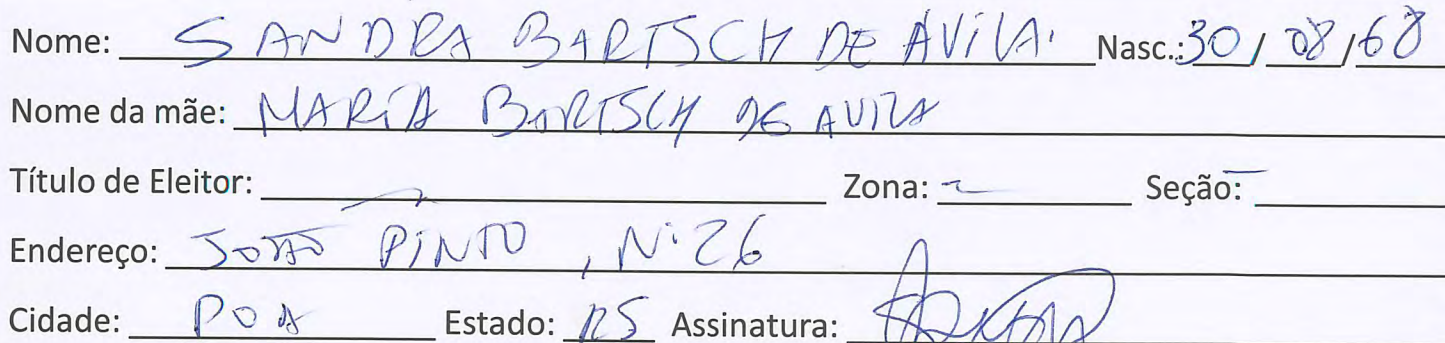 Nome: SANDRA BARTSCH DE AVILA Nasc.: 30 / 08 / 68
Nome da mãe: MARIA BARTSCH DE AVILA
Título de Eleitor: Zona: Seção:
Endereço: JOÃO PINTO, Nº 26
Cidade: POA Estado: RS Assinatura: